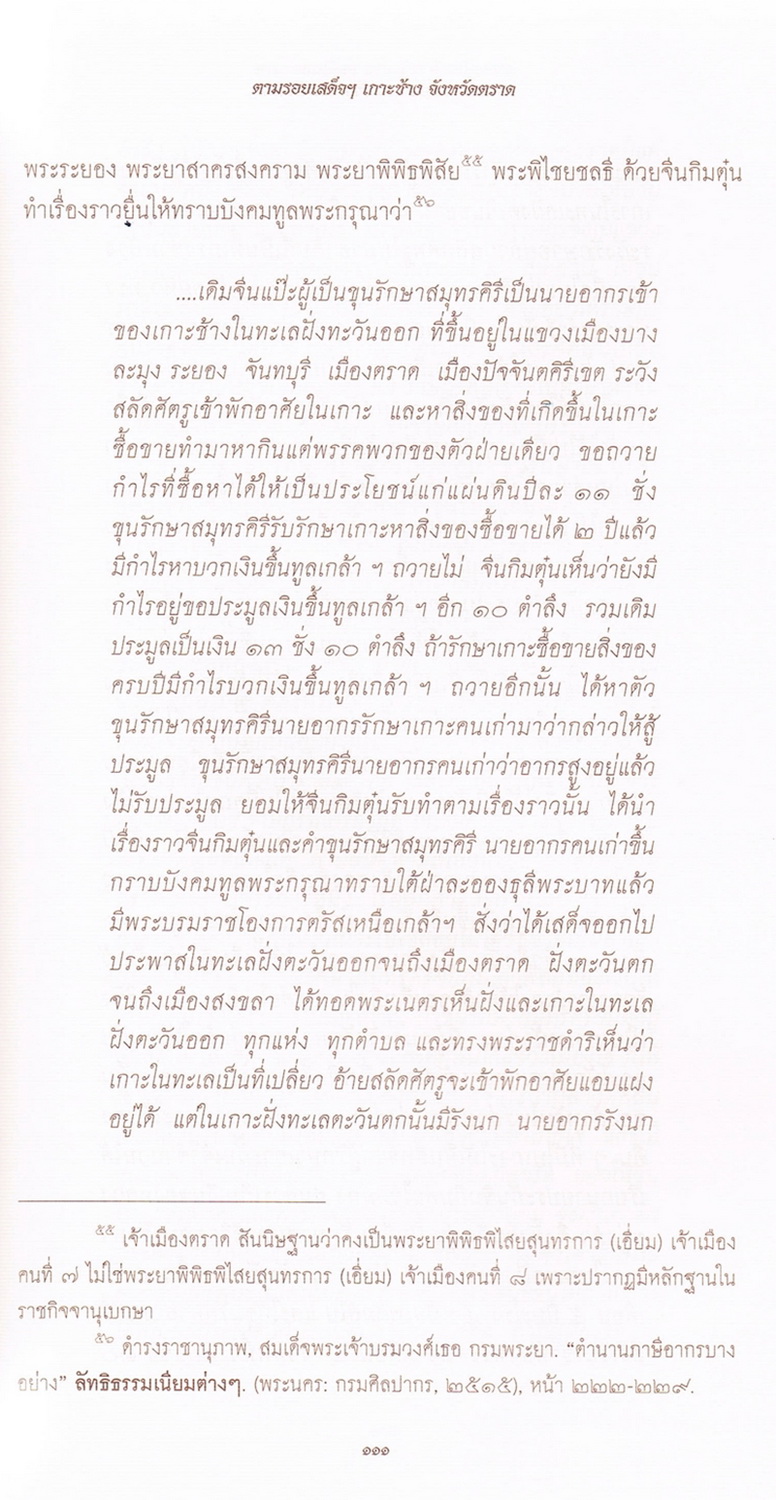 ตามรอยเสด็จฯ เกาะช้าง จังหวัดตราด
พระระยอง พระยาสาครสงคราม พระยาพิพิธพิสัย๕๕ พระพิไชยชลธี ด้วยจีนกิมตุ๋น
ทำเรื่องราวยื่นให้ทราบบังคมทูลพระกรุณาว่า๕๖
....เดิมจีนแป๊ะผู้เป็นขุนรักษาสมุทรคิรีเป็นนายอากรเช้า
ของเกาะช้างในทะเลฝั่งทะวันออก ที่ขึ้นอยู่ในแขวงเมืองบาง
ละมุง ระยอง จันทบุรี เมืองตราด เมืองปัจจันตคิรีเขต ระวัง
สลัดศัตรูเข้าพักอาศัยในเกาะ และหาสิ่งของที่เกิดขึ้นในเกาะ
ซื้อขายทำมาหากินแต่พรรคพวกของตัวฝ่ายเดียว ขอถวาย
กำไรที่ซื้อหาได้ให้เป็นประโยชน์แก่แผ่นดินปีละ ๑๑ ชั่ง
ขุนรักษาสมุทรคิรีรับรักษาเกาะหาสิ่งของซื้อขายได้ ๒ ปีแล้ว
มีกำไรหาบวกเงินขึ้นทูลเกล้า ฯ ถวายไม่ จีนกิมตุ๋นเห็นว่ายังมี
กำไรอยู่ขอประมูลเงินขึ้นทูลเกล้า ฯ อีก ๑๐ ตำลึง รวมเดิม
ประมูลเป็นเงิน ๑๓ ชั่ง ๑๐ ตำลึง ถ้ารักษาเกาะซื้อขายสิ่งของ
ครบปีมีกำไรบวกเงินขึ้นทูลเกล้า ฯ ถวายอีกนั้น ได้หาตัว
ขุนรักษาสมุทรคิรีนายอากรรักษาเกาะคนเก่ามาว่ากล่าวให้สู้
ประมูล ขุนรักษาสมุทรคิรีนายอากรคนเก่าว่าอากรสูงอยู่แล้ว
ไม่รับประมูล ยอมให้จีนกิมตุ๋นรับทำตามเรื่องราวนั้น ได้นำ
เรื่องราวจีนกิมตุ๋นและคำขุนรักษาสมุทรคิรี นายอากรคนเก่าขึ้น
กราบบังคมทูลพระกรุณาทราบใต้ฝ่าละอองธุลีพระบาทแล้ว
มีพระบรมราชโองการตรัสเหนือเกล้าฯ สั่งว่าได้เสด็จออกไป
ประพาสในทะเลฝั่งตะวันออกจนถึงเมืองตราด ฝั่งตะวันตก
จนถึงเมืองสงขลา ได้ทอดพระเนตรเห็นฝั่งและเกาะในทะเล
ฝั่งตะวันออก ทุกแห่ง ทุกตำบล และทรงพระราชดำริเห็นว่า
เกาะในทะเลเป็นที่เปลี่ยว อ้ายสลัดศัตรูจะเข้าพักอาศัยแอบแฝง
อยู่ได้ แต่ในเกาะฝั่งทะเลตะวันตกนั้นมีรังนก นายอากรรังนก
๕๕ เจ้าเมืองตราด สันนิษฐานว่าคงเป็นพระยาพิพิธพิไสยสุนทรการ (เอี่ยม) เจ้าเมือง
คนที่ ๗ ไม่ใช่พระยาพิพิธพิไสยสุนทรการ (เอี่ยม) เจ้าเมืองคนที่ ๘ เพราะปรากฏมีหลักฐานใน
ราชกิจจานุเบกษา
๕๖ ดำรงราชานุภาพ, สมเด็จพระเจ้าบรมวงศ์เธอ กรมพระยา. “ตำนานภาษีอากรบาง
อย่าง” ลัทธิธรรมเนียมต่างๆ. (พระนคร: กรมศิลปากร, ๒๕๑๕), หน้า ๒๒๒-๒๒๙.
๑๑๑